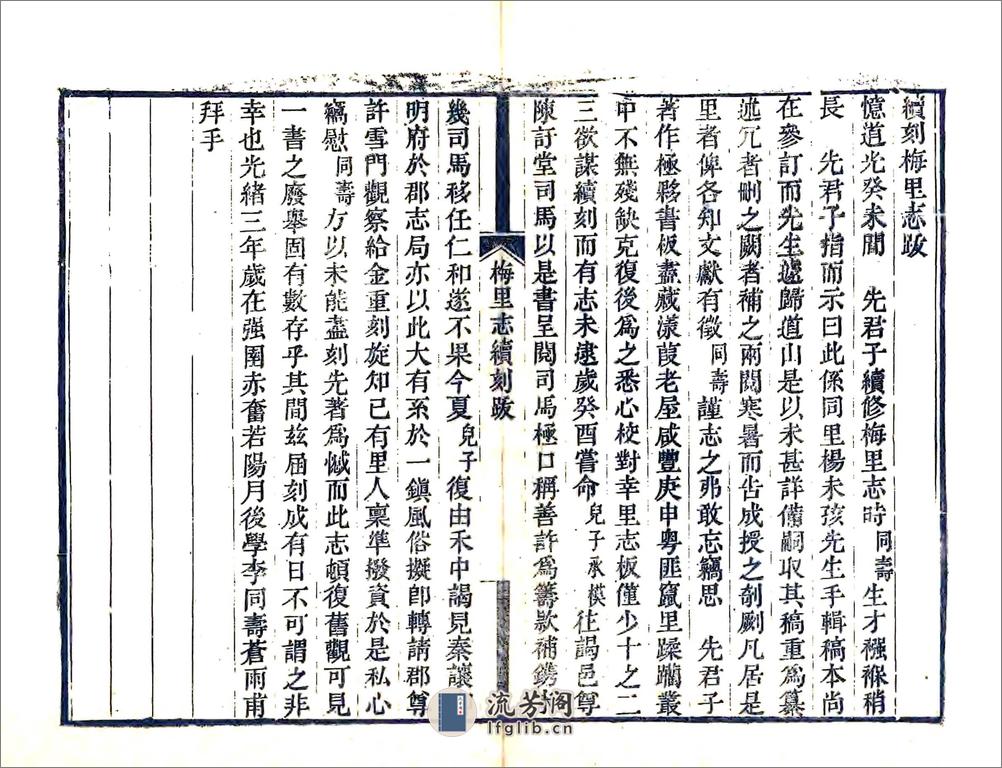 續刻梅里志跋
憶道光癸未間　先君子續修梅里志時同壽生才襁褓稍
長　先君子指而示曰此係同里楊未孩先生手輯稿本尚
在參訂而先生遽歸道山是以未甚詳備嗣取其稿重為纂
述冗者刪之闕者補之兩閱寒暑而告成授之剞劂凡居是
里者俾各知文獻有徵同壽謹志之弗敢忘竊思　先君子
著作極夥書板盡藏漾葭老屋咸豐庚申粵匪竄里蹂躪叢
中不無殘缺克復後為之悉心校對幸里志板僅少十之二
三欲謀續刻而有志未逮歲癸酉嘗命兒子承模往謁邑尊
陳訏堂司馬以是書呈閱司馬極口稱善許為籌款補鐫
梅里志續刻跋
幾司馬移任仁和遂不果今夏兒子復由禾中謁見秦讓
明府於郡志局亦以此大有系於一鎮風俗擬卽轉請郡尊
許雪門觀察給金重刻旋知已有里人稟準撥資於是私心
竊慰同壽方以未能盡刻先著為憾而此志頓復舊觀可見
一書之廢舉固有數存乎其間茲屆刻成有日不可謂之非
幸也光緒三年歲在强圉赤奮若陽月後學李同壽蒼雨甫
拜手
流芳阁
lfglib.cn